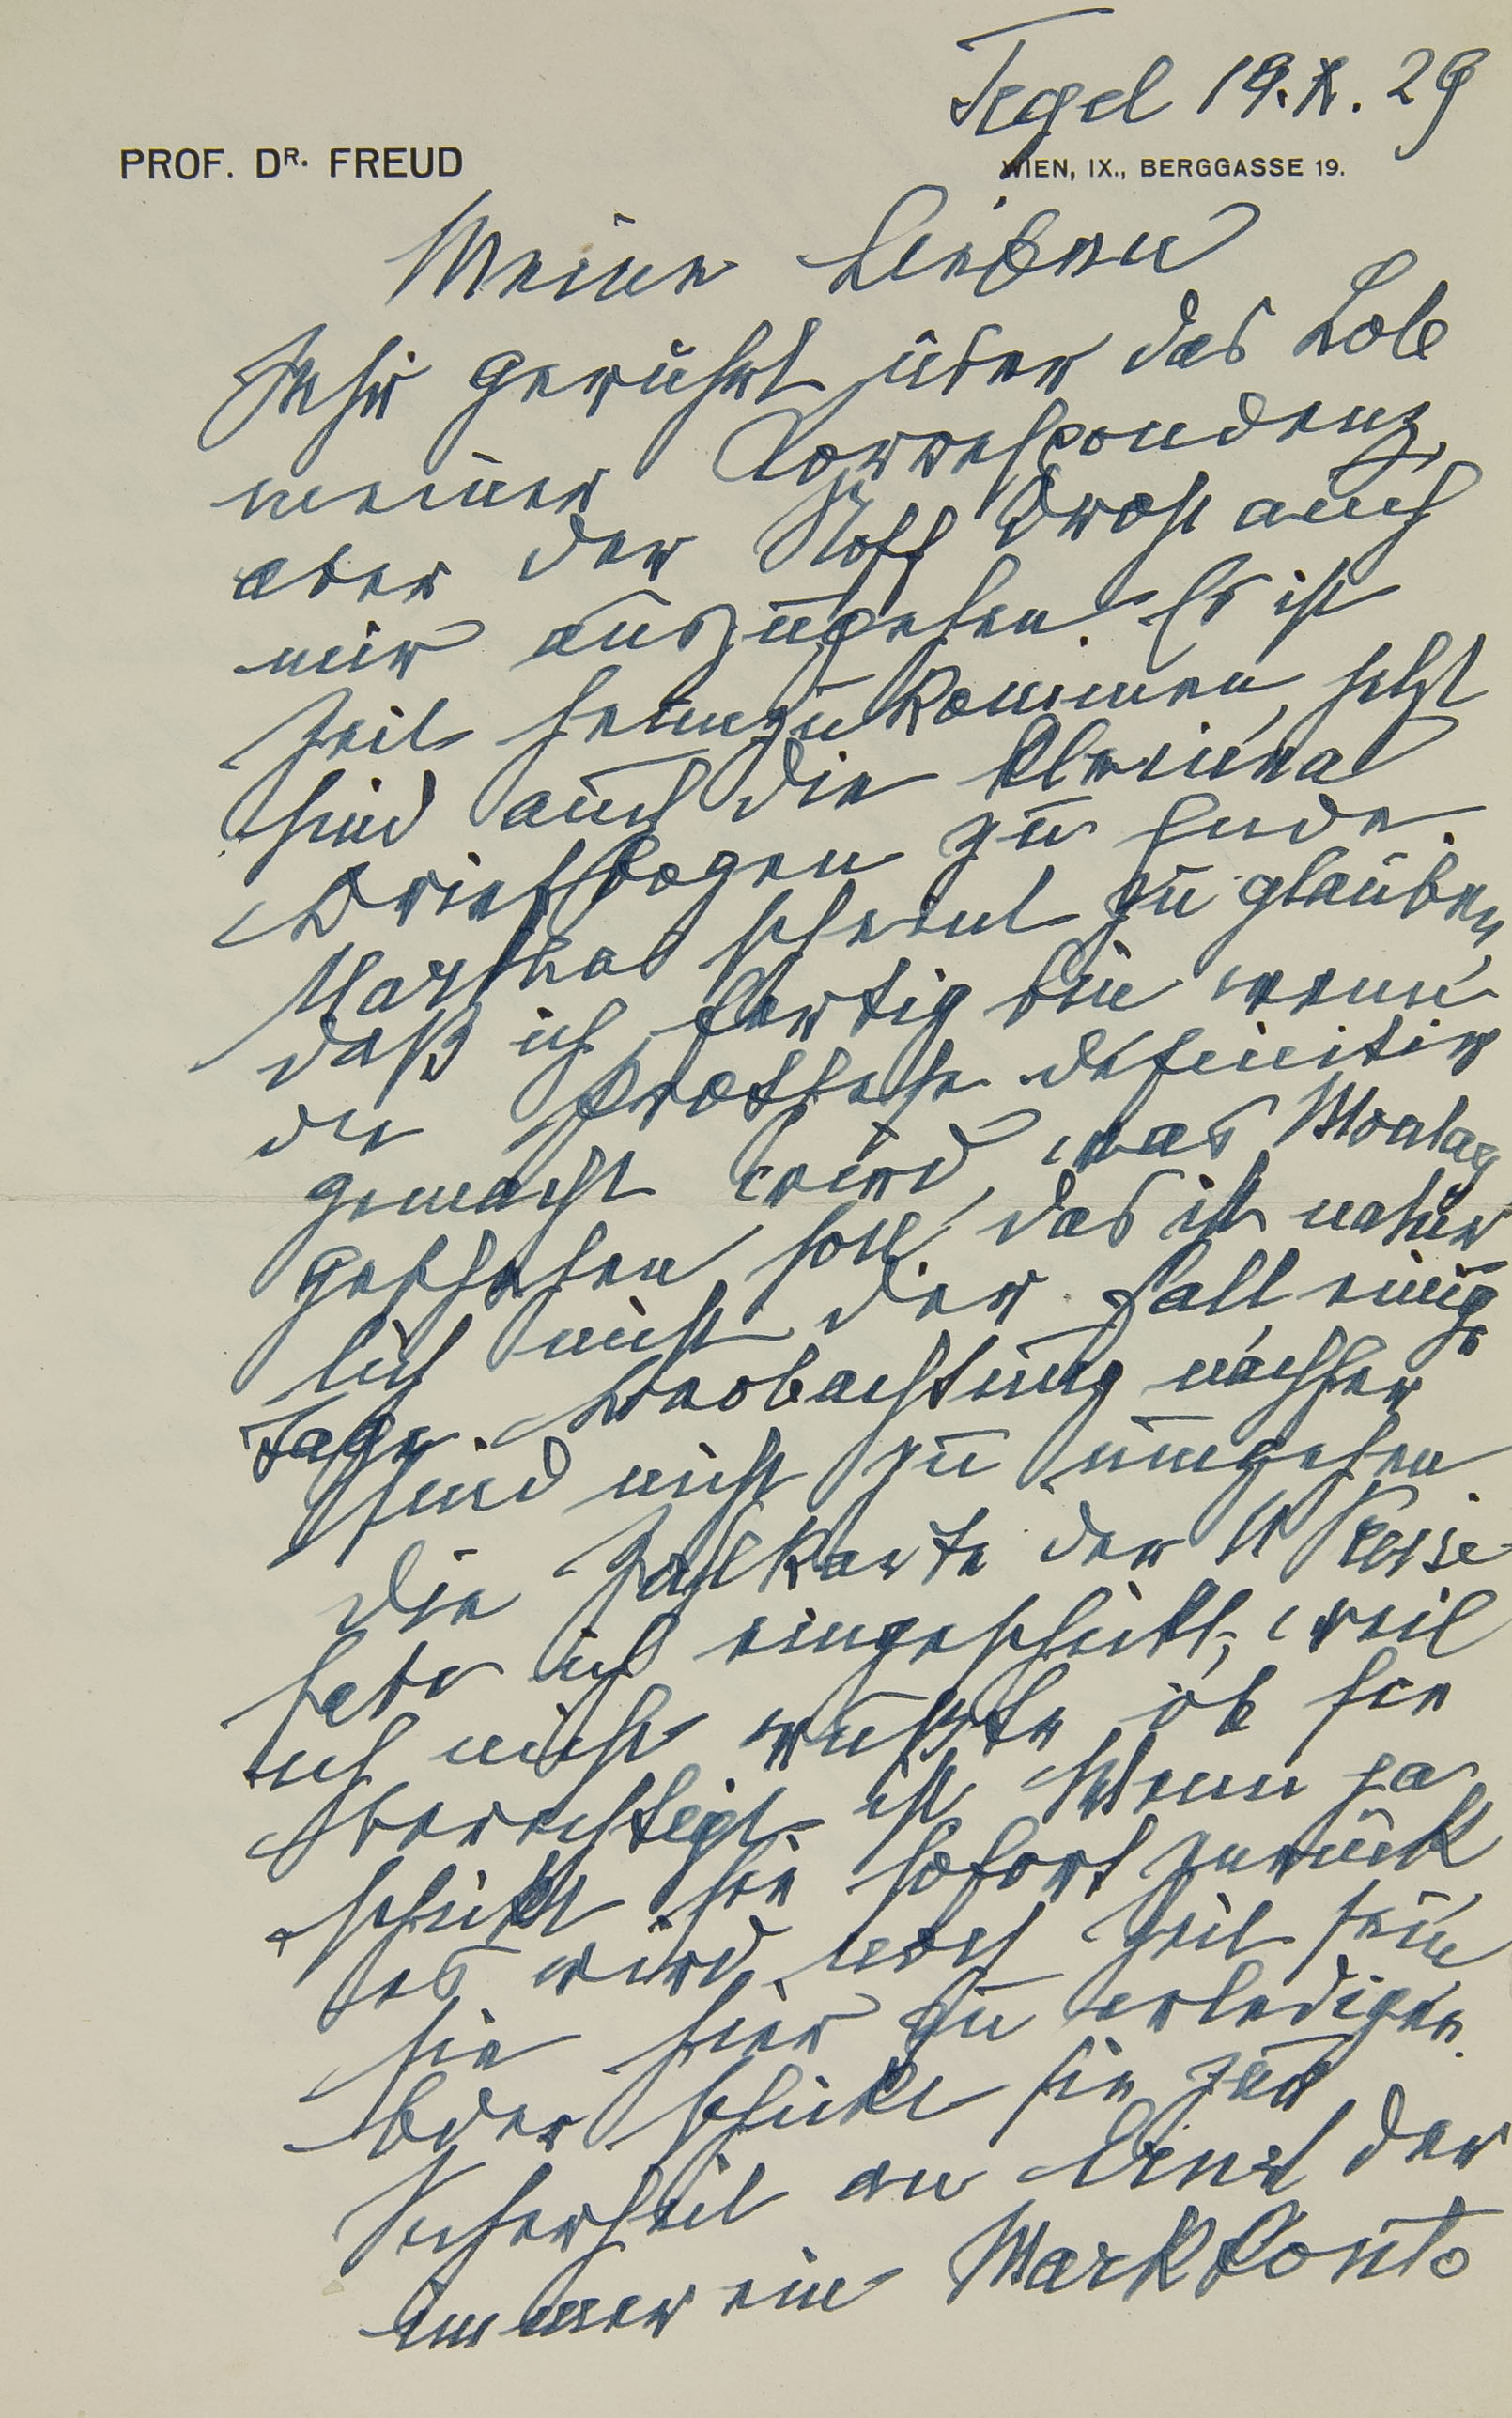 Tegel 19. X. 29
PROF. DR. FREUD
WIEN, IX., BERGGASSE 19.
Meine Lieben
Sehr gerührt über das Lob
meiner Correspondenz,
aber der Stoff droht auch
mir auszugehen. Es ist
Zeit heimzukommen, jetzt
sind auch die
Briefbogen zu Ende.
Martha scheint zu glauben,
daß ich fertig bin wenn
die Prothese definitiv
gemacht wird, was Montag
geschehen soll, das ist natür
lich nicht der Fall, einige
Tage Beobachtung nachher
sind nicht zu umgehen.
Die Zahlkarte der
habe ich eingeschickt, weil
ich nicht wußte ob sie
berechtigt ist. Wenn ja
schickt sie sofort zurück
es wird noch Zeit sein
sie hier zu erledigen.
Oder schickt sie zur
Sicherheit an Ernst der
immer ein Markkonto